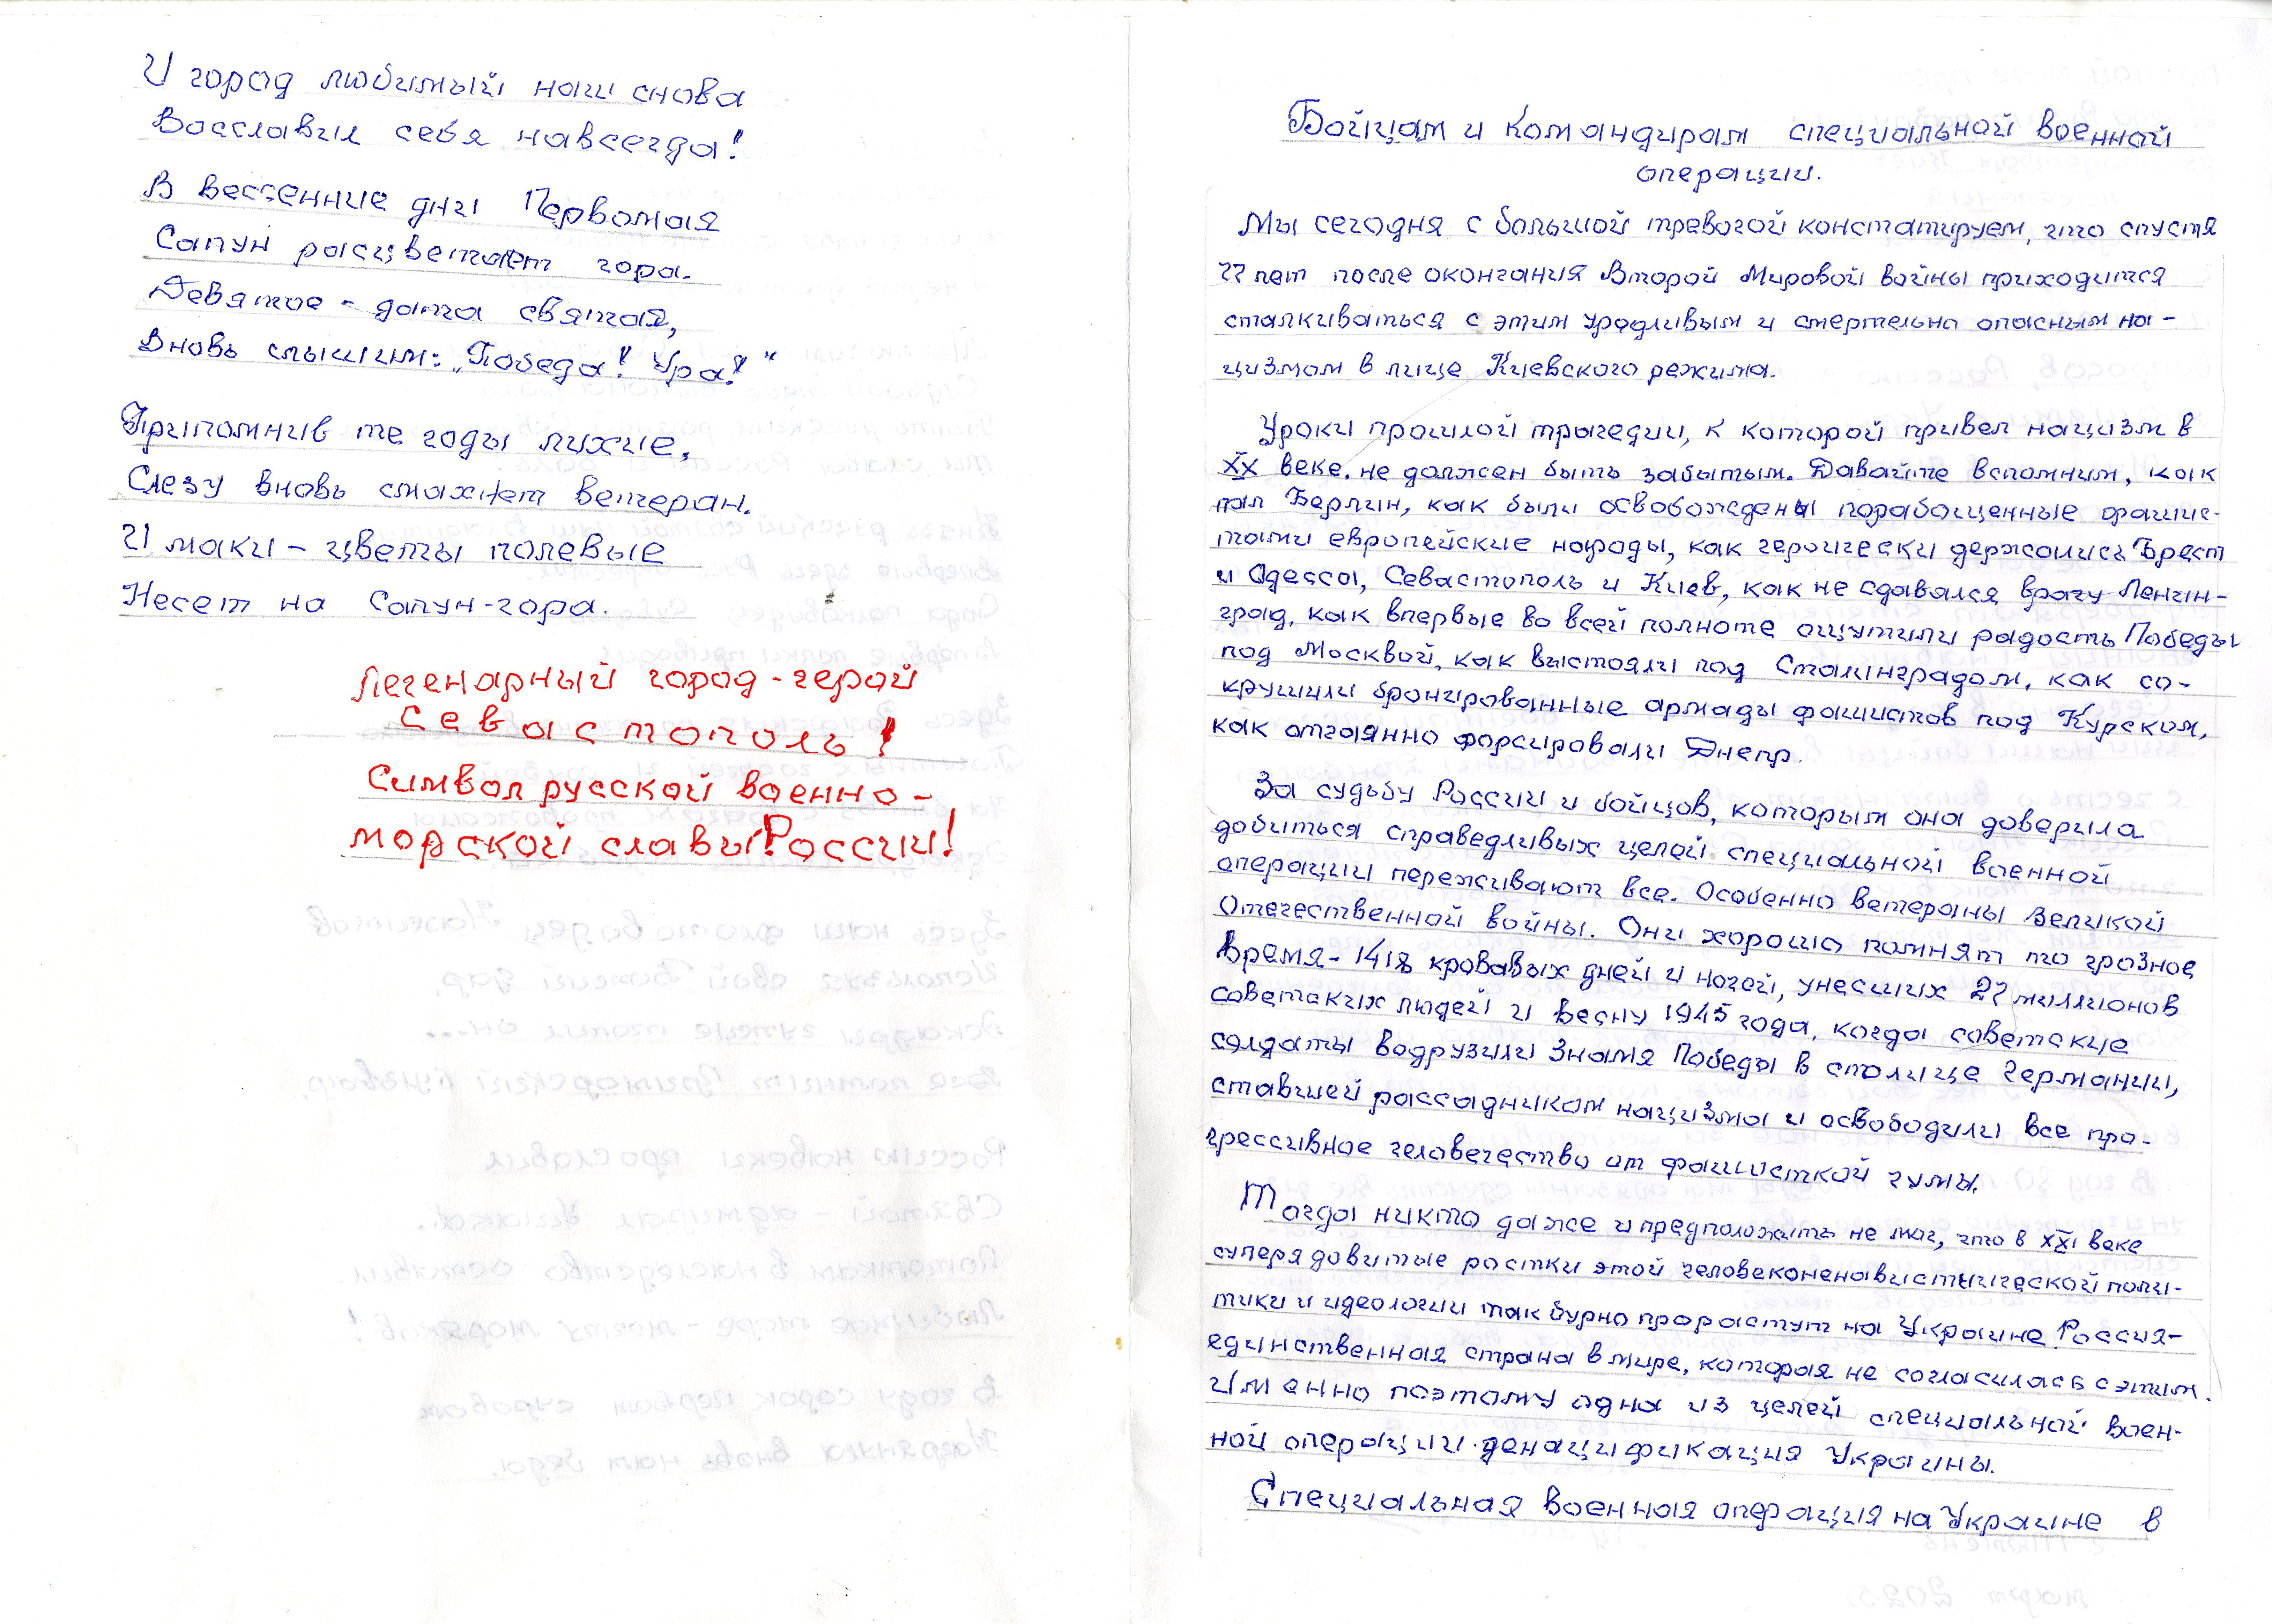 И город любимый наш снова
Восславил себя навсегда!
В вессенние дни Первомая
Сапун расцветает гора.
Девятое - дата святая,
Вновь слышим: „Победа! Ура!"
Припомнив те годы лихие,
Слезу вновь смахнет ветеран.
И маки – цветы полевые
Несет на Сапун-гора.
Легенарный город-герой
Севастополь!
Символ русской военно-
морской славы России!
Бойцам и командирам специальной военной
операции.
Мы сегодня с большой тревогой констатируем, что спустя
77 лет после окончания Второй Мировой войны приходится
сталкиваться с этим уродливым и смертельно опасным на-
цизмом в лице Киевского режима.
Уроки прошлой трагедии, к которой привел нацизм в
XX веке. не должен быть забытым. Давайте вспомним, как
пал Берлин, как были освобождены порабощенные фашис-
тами европейские народы, как героически держались Брест
и Одесса, Севастополь и Киев, как не сдавался врагу Ленин-
град, как впервые во всей полноте ощутили радость Победы
под Москвой, как выстояли под Сталинградом, как со-
крушили бронированные армады фашистов под Курском,
как отчаянно форсировали Днепр.
За судьбу России и бойцов, которым она доверила
добиться справедливых целей специальной военной
операции переживают все. Особенно ветераны Великой
Отечественной войны. Они хорошо помнят то грозное
время - 1418 кровавых дней и ночей, унесших 27 миллионов
советских людей и весну 1945 года, когда советские
солдаты водрузили Знамя Победы в столице Германии,
ставшей рассадником нацизма и освободили все про-
грессивное человечество от фашисткой чумы.
Тогда никто даже и предположить не мог, что в XXI веке
суперядовитые ростки этой человеконенавистнической поли-
тики и идеологии так бурно прорастут на Украине. Россия-
единственная страна в мире, которая не согласилась с этим.
Именно поэтому одна из целей специальной воен-
ной операции - денацификация Украины.
Специальная военная операция на Украине в